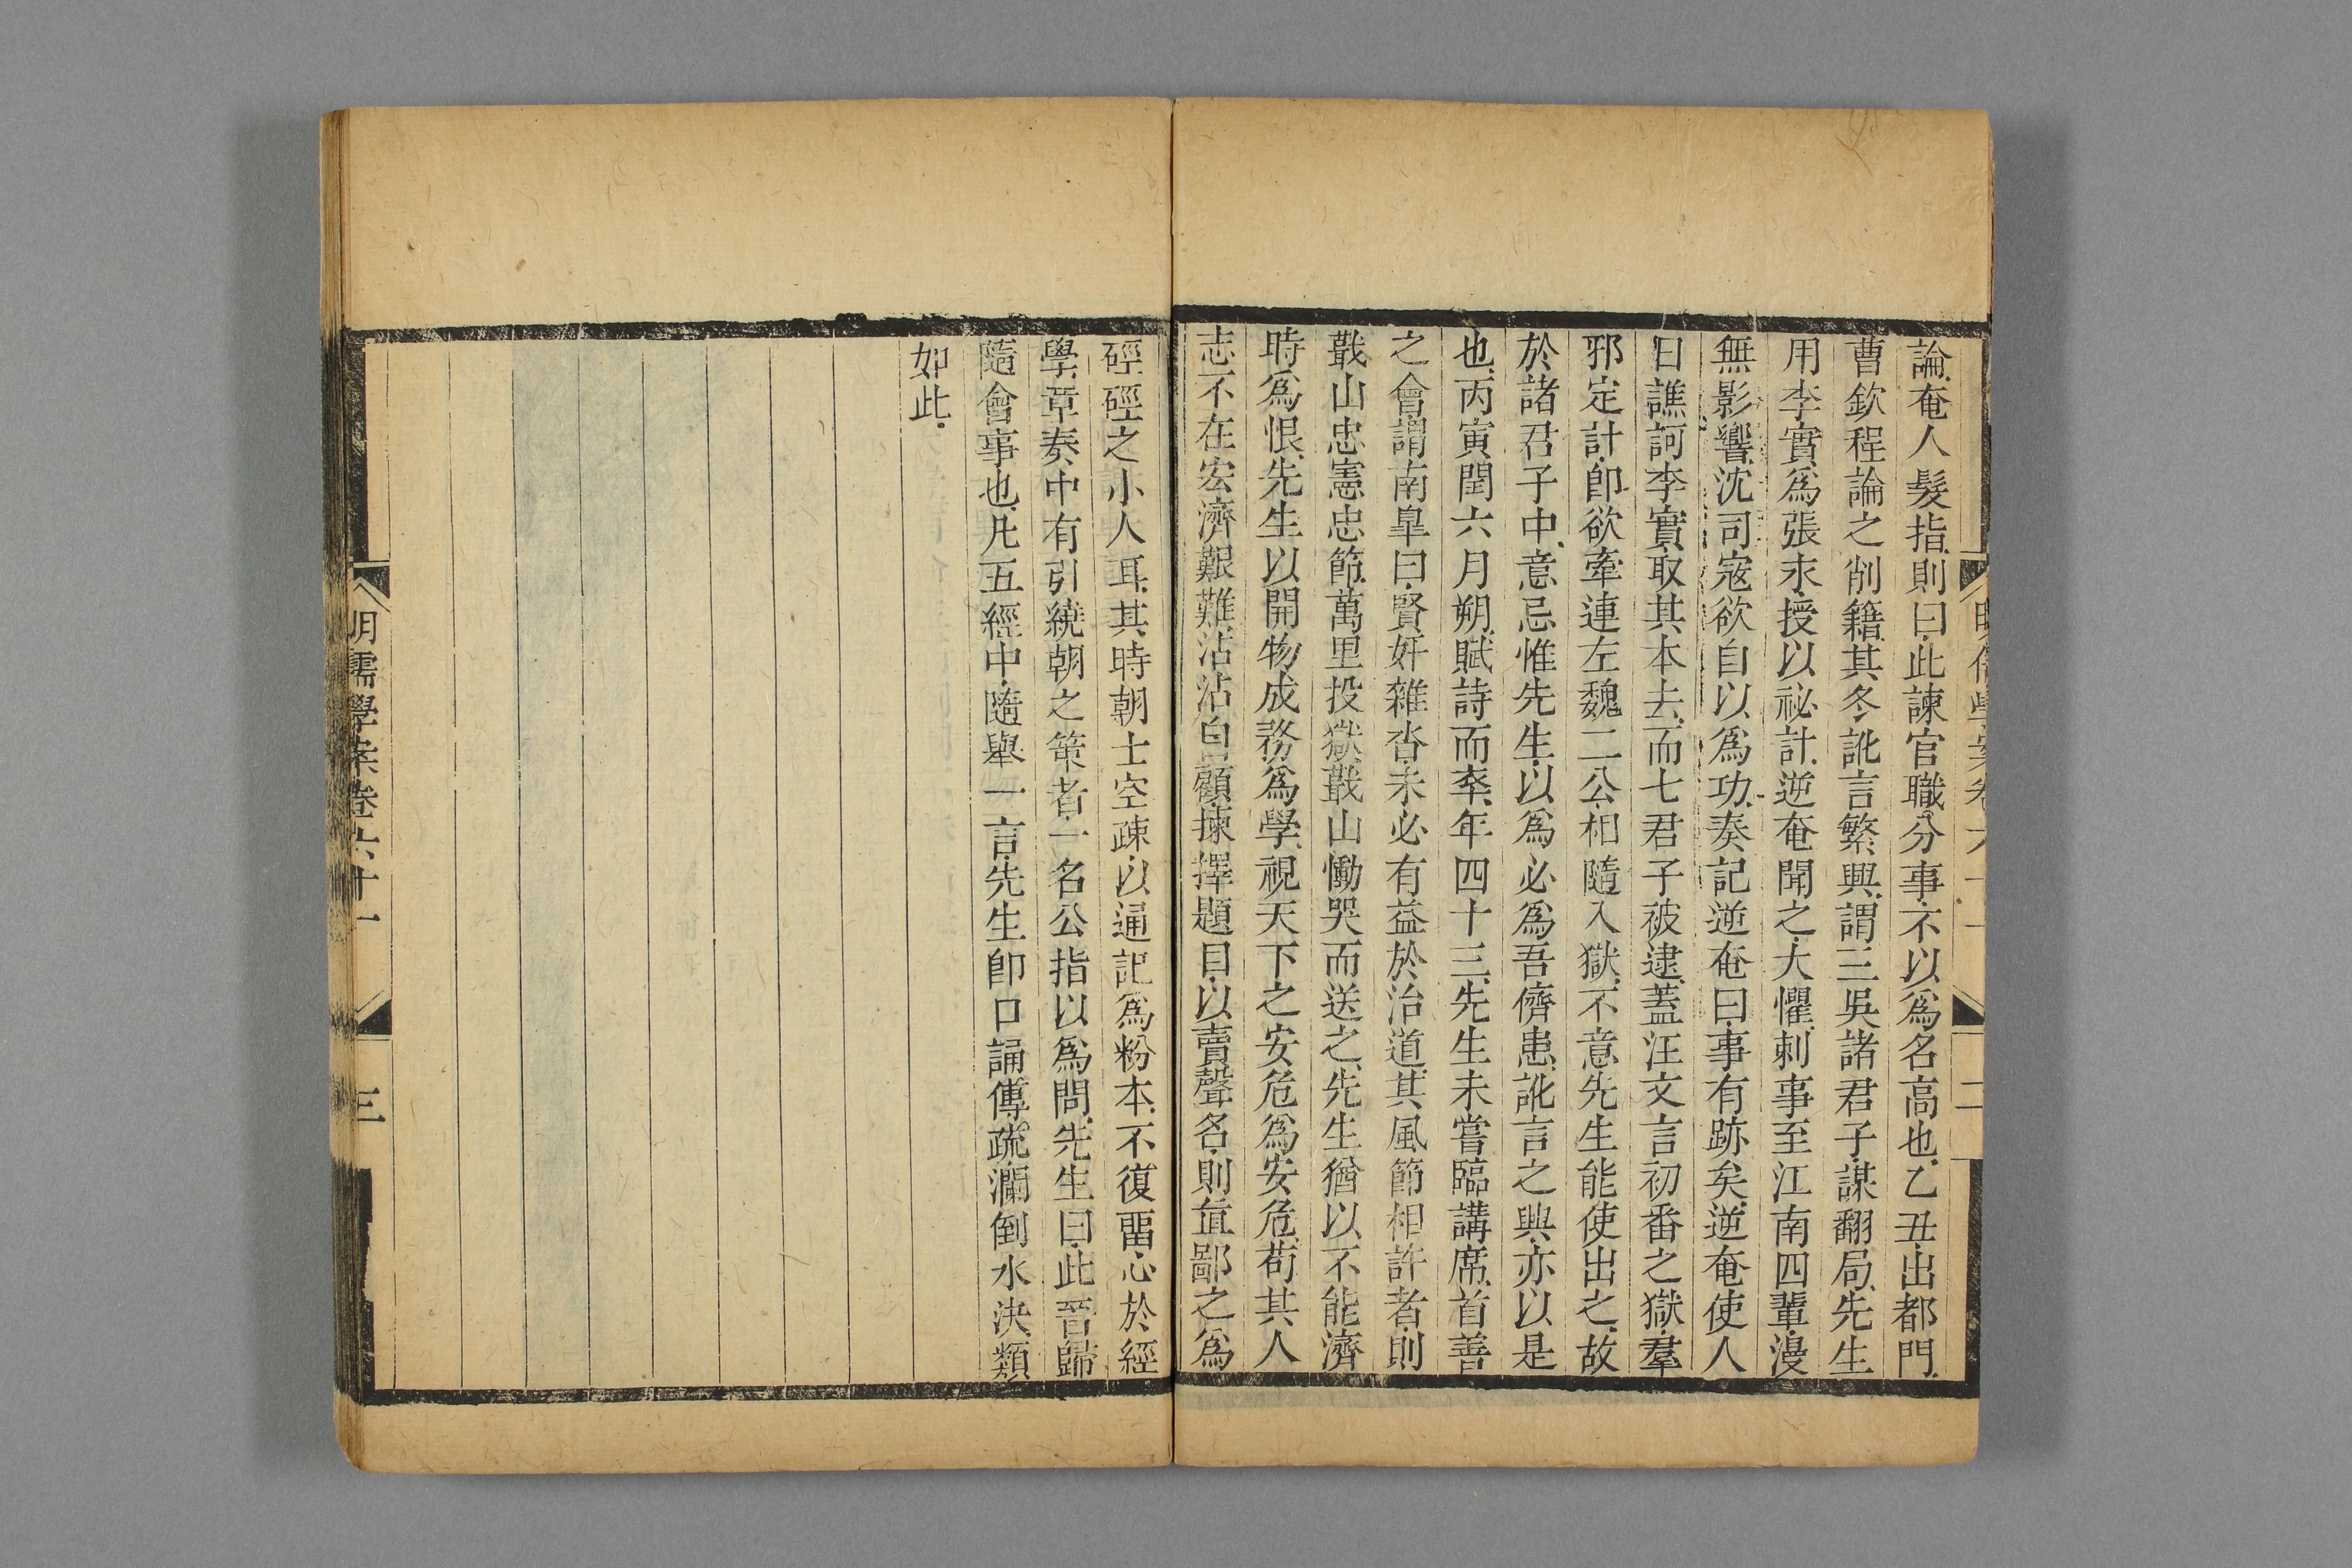 論奄人髮指則曰此諫官職分事不以爲名高也乙丑出都門
曹欽程論之削籍其冬訛言繁興謂三吳諸君子謀翻局先生
用李實爲張永授以祕計逆奄聞之大懼刺事至江南四輩漫
無影響沈司寇欲自以爲功奏記逆奄曰事有跡矣逆奄使人
日譙訶李實取其本去而七君子被逮蓋汪文言初番之獄羣
邪定計卽欲牽連左魏二公相隨入獄不意先生能使出之故
於諸君子中意忌惟先生以爲必爲吾儕患訛言之興亦以是
也丙寅閏六月朔賦詩而卒年四十三先生未嘗臨講席首善
之會謂南皐曰賢奸雜沓未必有益於治道其風節相許者則
蕺山忠憲忠節萬里投獄蕺山慟哭而送之先生猶以不能濟
時爲恨先生以開物成務爲學視天下之安危爲安危苟其人
志不在宏濟艱難沾沾自顧揀擇題目以賣聲名則直鄙之爲
硜硜之小人耳其時朝士空疎以通記爲粉本不復畱心於經
學章奏中有引繞朝之策者一名公指以爲問先生曰此晉歸
隨會事也凡五經中隨舉一言先生卽口誦傳疏瀾倒水決類
如此
明儒學案卷六十一
三